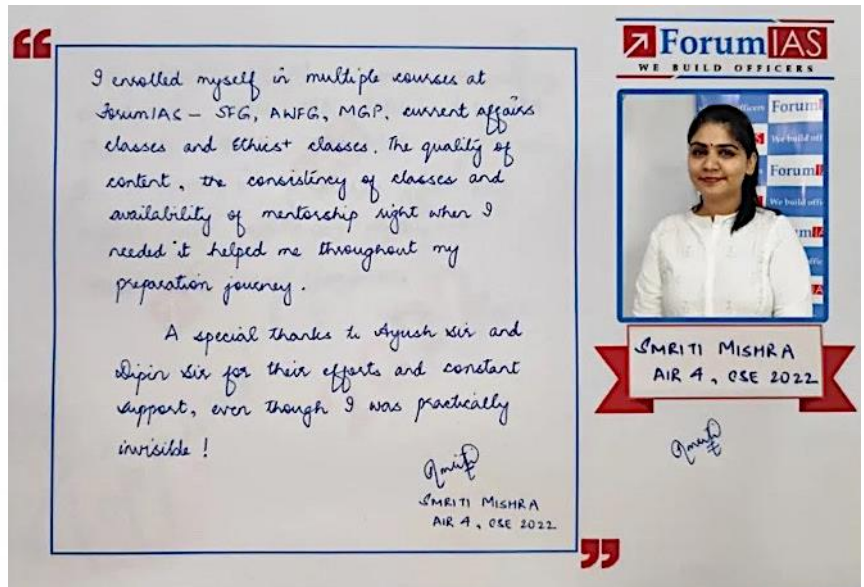 I enrolled myself in multiple courses at
ForumIAS – SFG, AWFG, MGP, current affairs
classes and Ethics+ classes. The quality of
content, the consistency of classes and
availability of mentorship right when I
needed it helped me throughout my
preparation journey.
A special thanks to Ayush sir and
Dipin sir for their efforts and constant
support, even though I was practically
invisible!
Smriti
SMRITI MISHRA
AIR 4, CSE 2022
ForumIAS
WE BUILD OFFICERS
officers Forum
We build offi
Forum
We build offi
SMRITI MISHRA
AIR 4, CSE 2022
Smriti